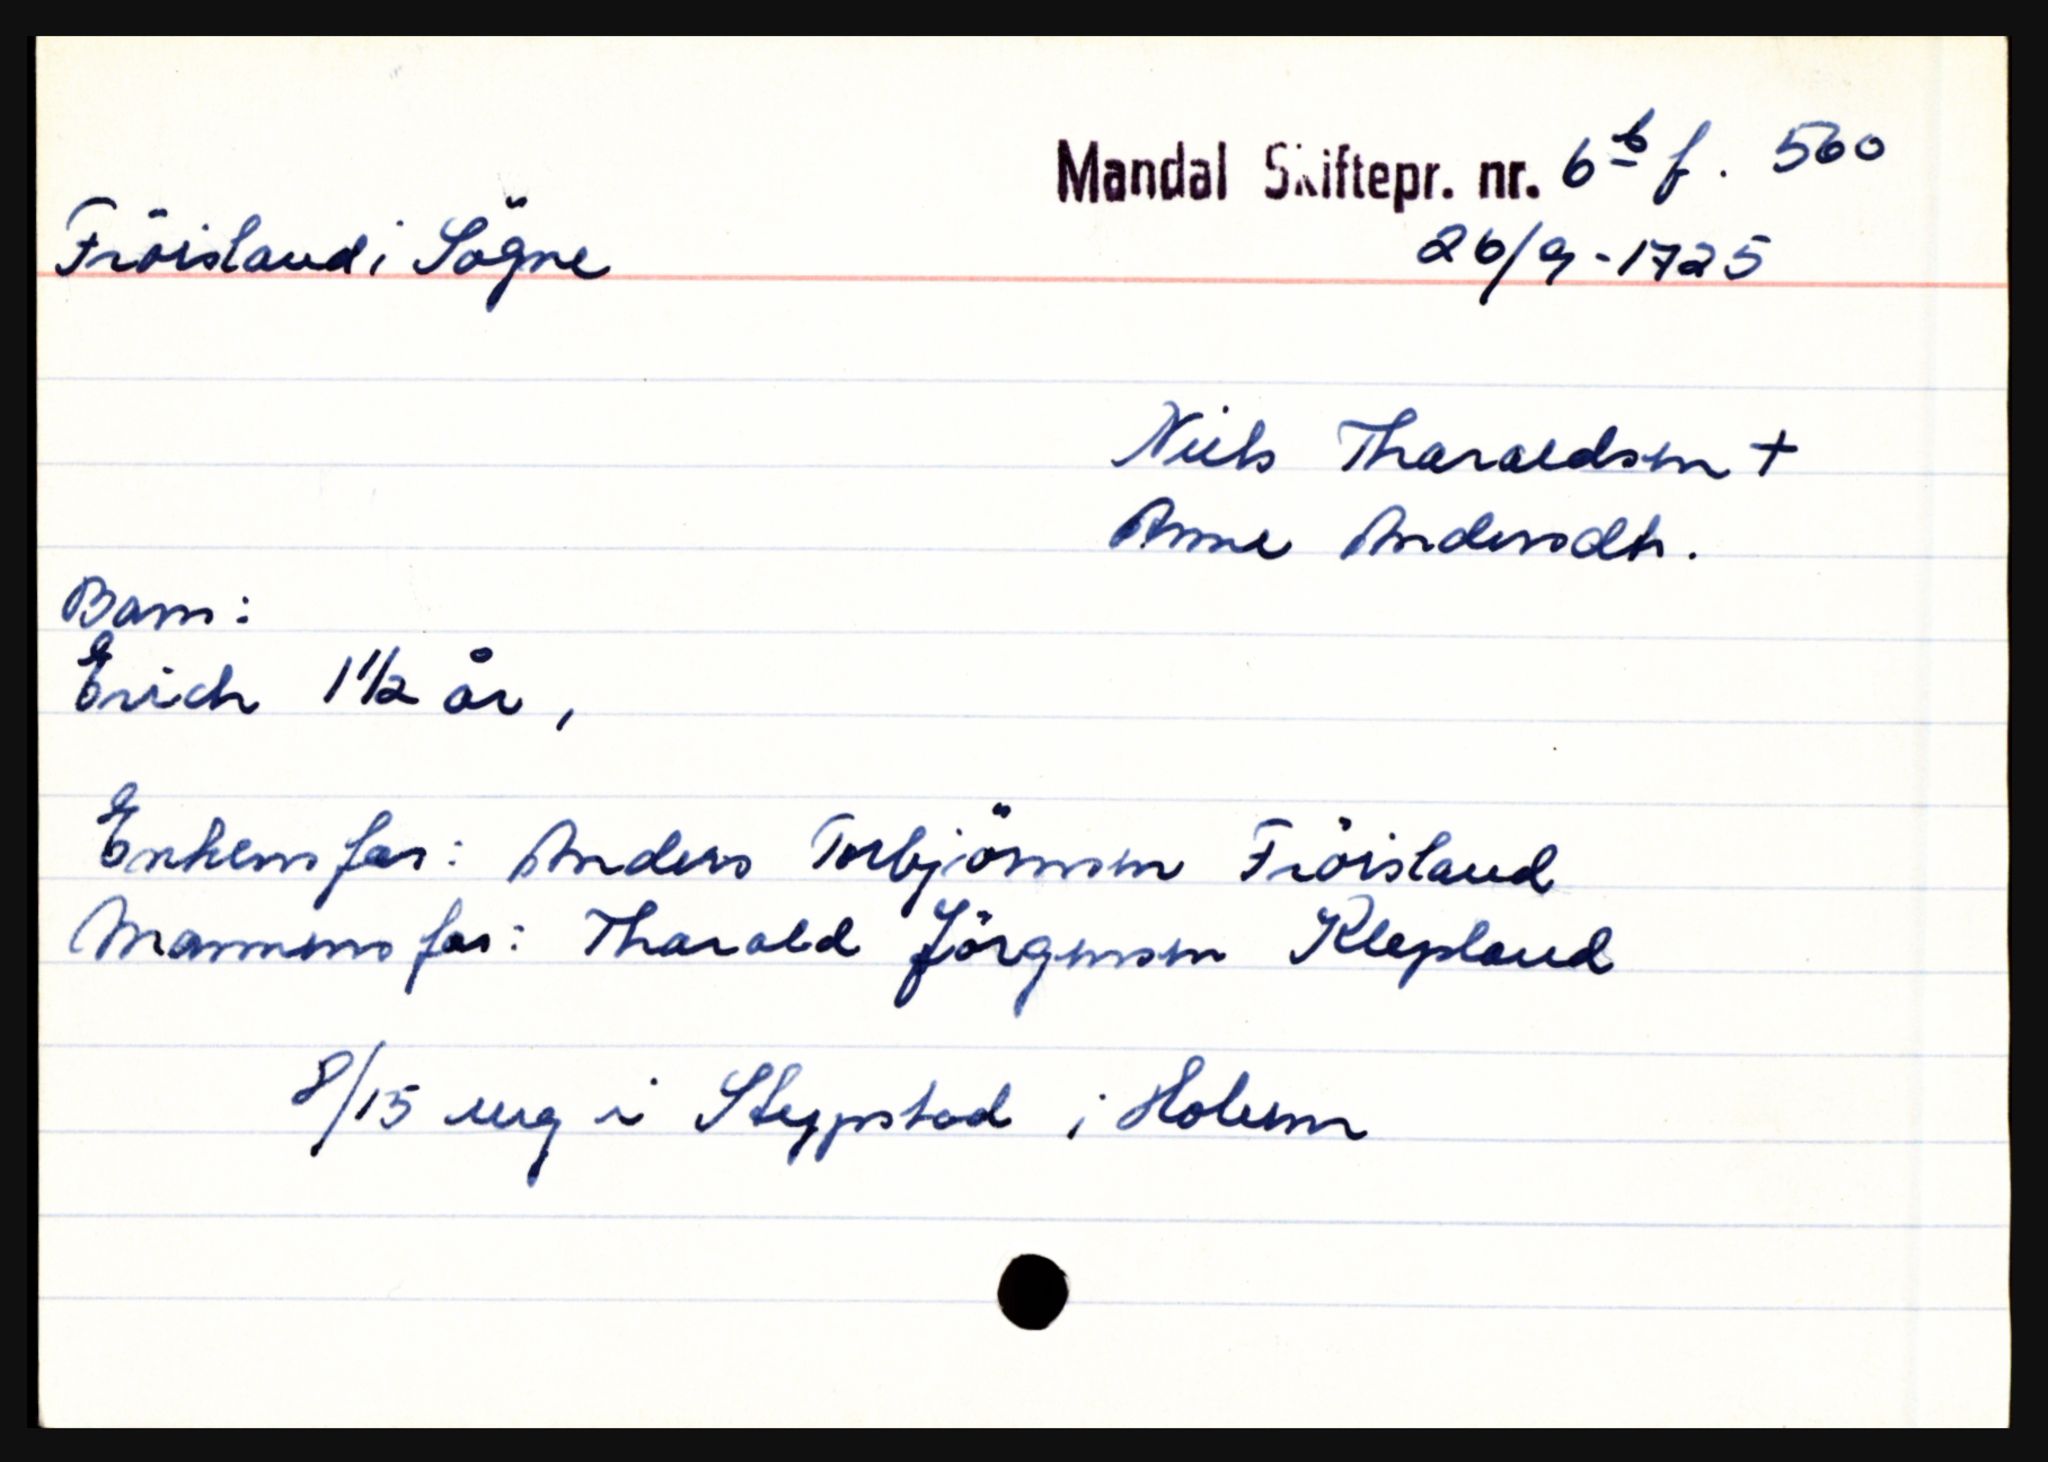 Mandal Skiftepr. nr. 6b f. 560
Fröisland i Sögne 26/9-1725
Niels Tharaldsen +
Anne Andersdtr.
Barn:
Erich 1 1/2 år,
Enkens far: Anders Torbjörnsen Fröisland
Mannens far: Tharald Jörgensen Klepland
8/15 eng i Steppstad i Holum